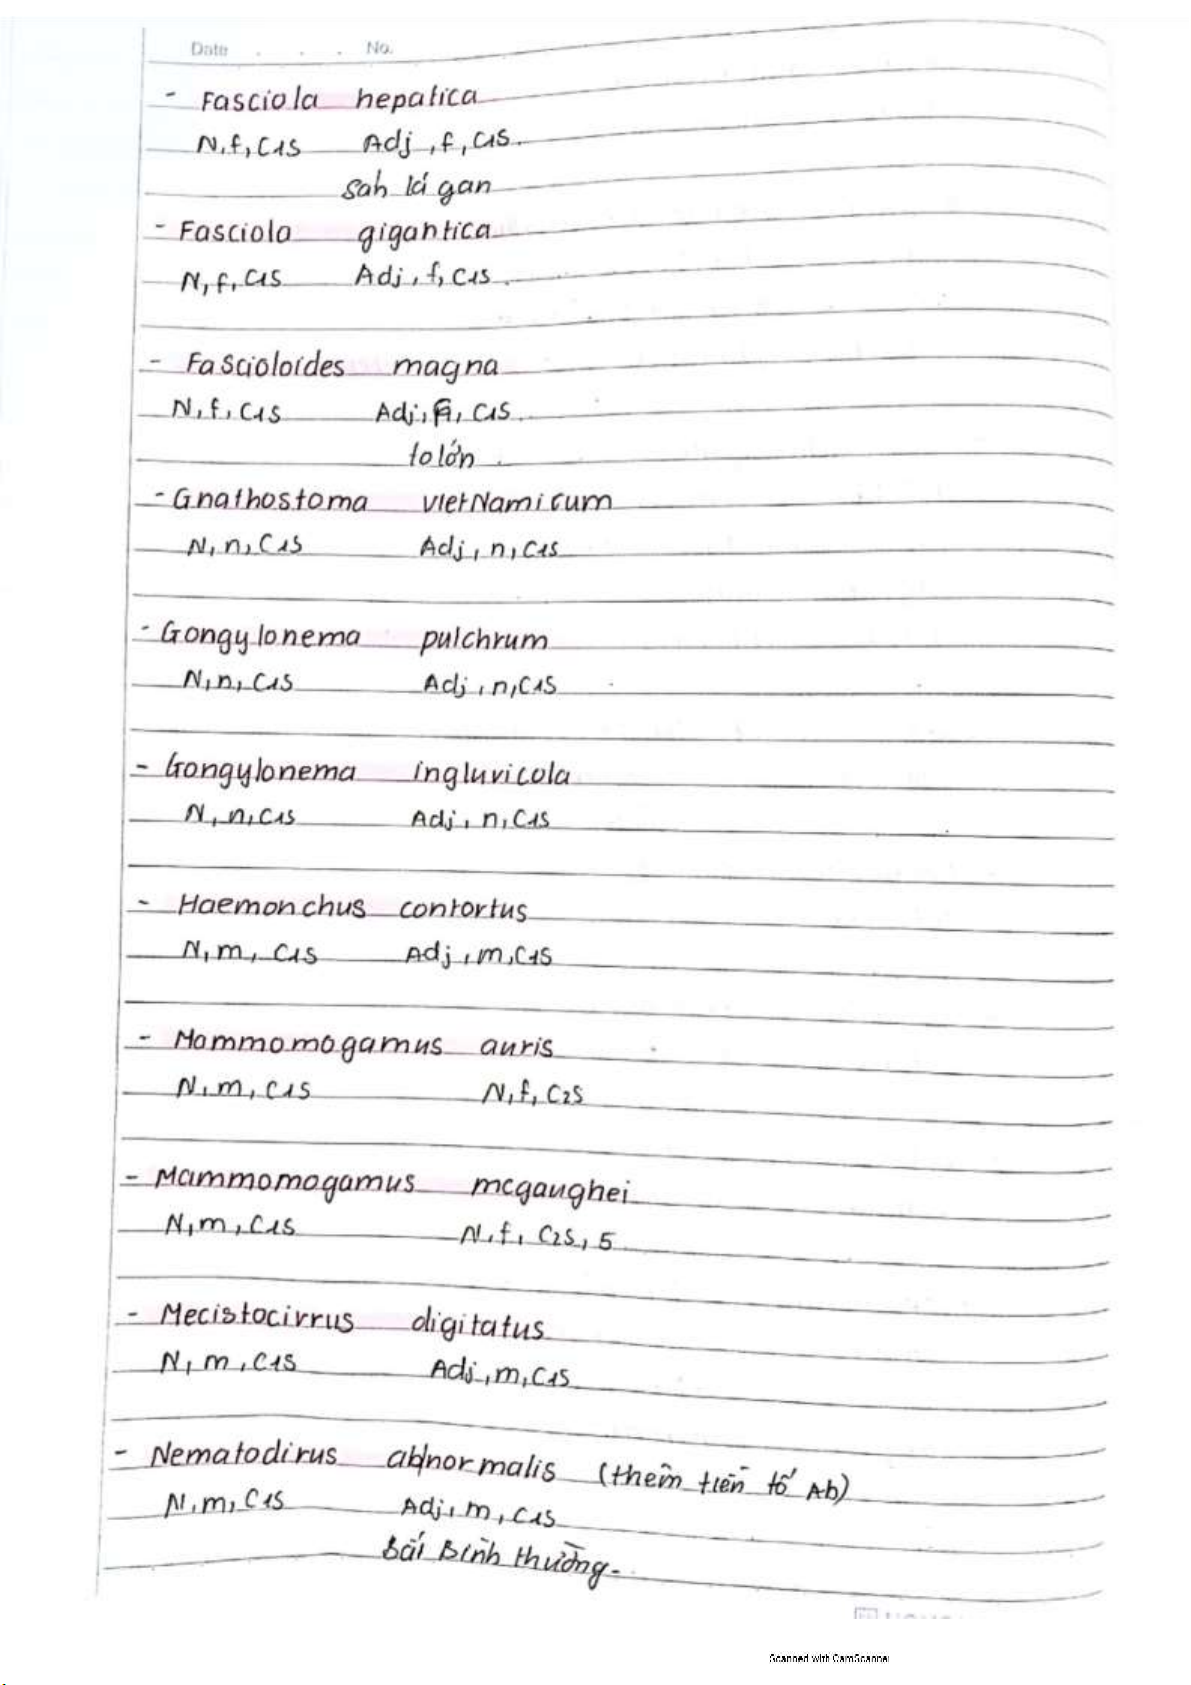 Date . . . No.
- Fasciola hepatica
N, f, C1S Adj, f, C1S.
sán lá gan
- Fasciola gigantica
N, f, C1S Adj, f, C1S.
- Fascioloides magna
N, f, C1S Adj, f, C1S.
to lớn.
- Gnathostoma vietNamicum
N, n, C1S Adj, n, C1S
- Gongylonema pulchrum
N, n, C1S Adj, n, C1S
- Gongylonema ingluvicola
N, n, C1S Adj, n, C1S
- Haemonchus contortus
N, m, C1S Adj, m, C1S
- Mammomogamus auris
N, m, C1S N, f, C2S
- Mammomogamus mcgaughei
N, m, C1S N, f, C2S, 5
- Mecistocirrus digitatus
N, m, C1S Adj, m, C1S
- Nematodirus ab|normalis (thêm tiền tố Ab)
N, m, C1S Adj, m, C1S
Bất Bình thường.
Scanned with CamScanner